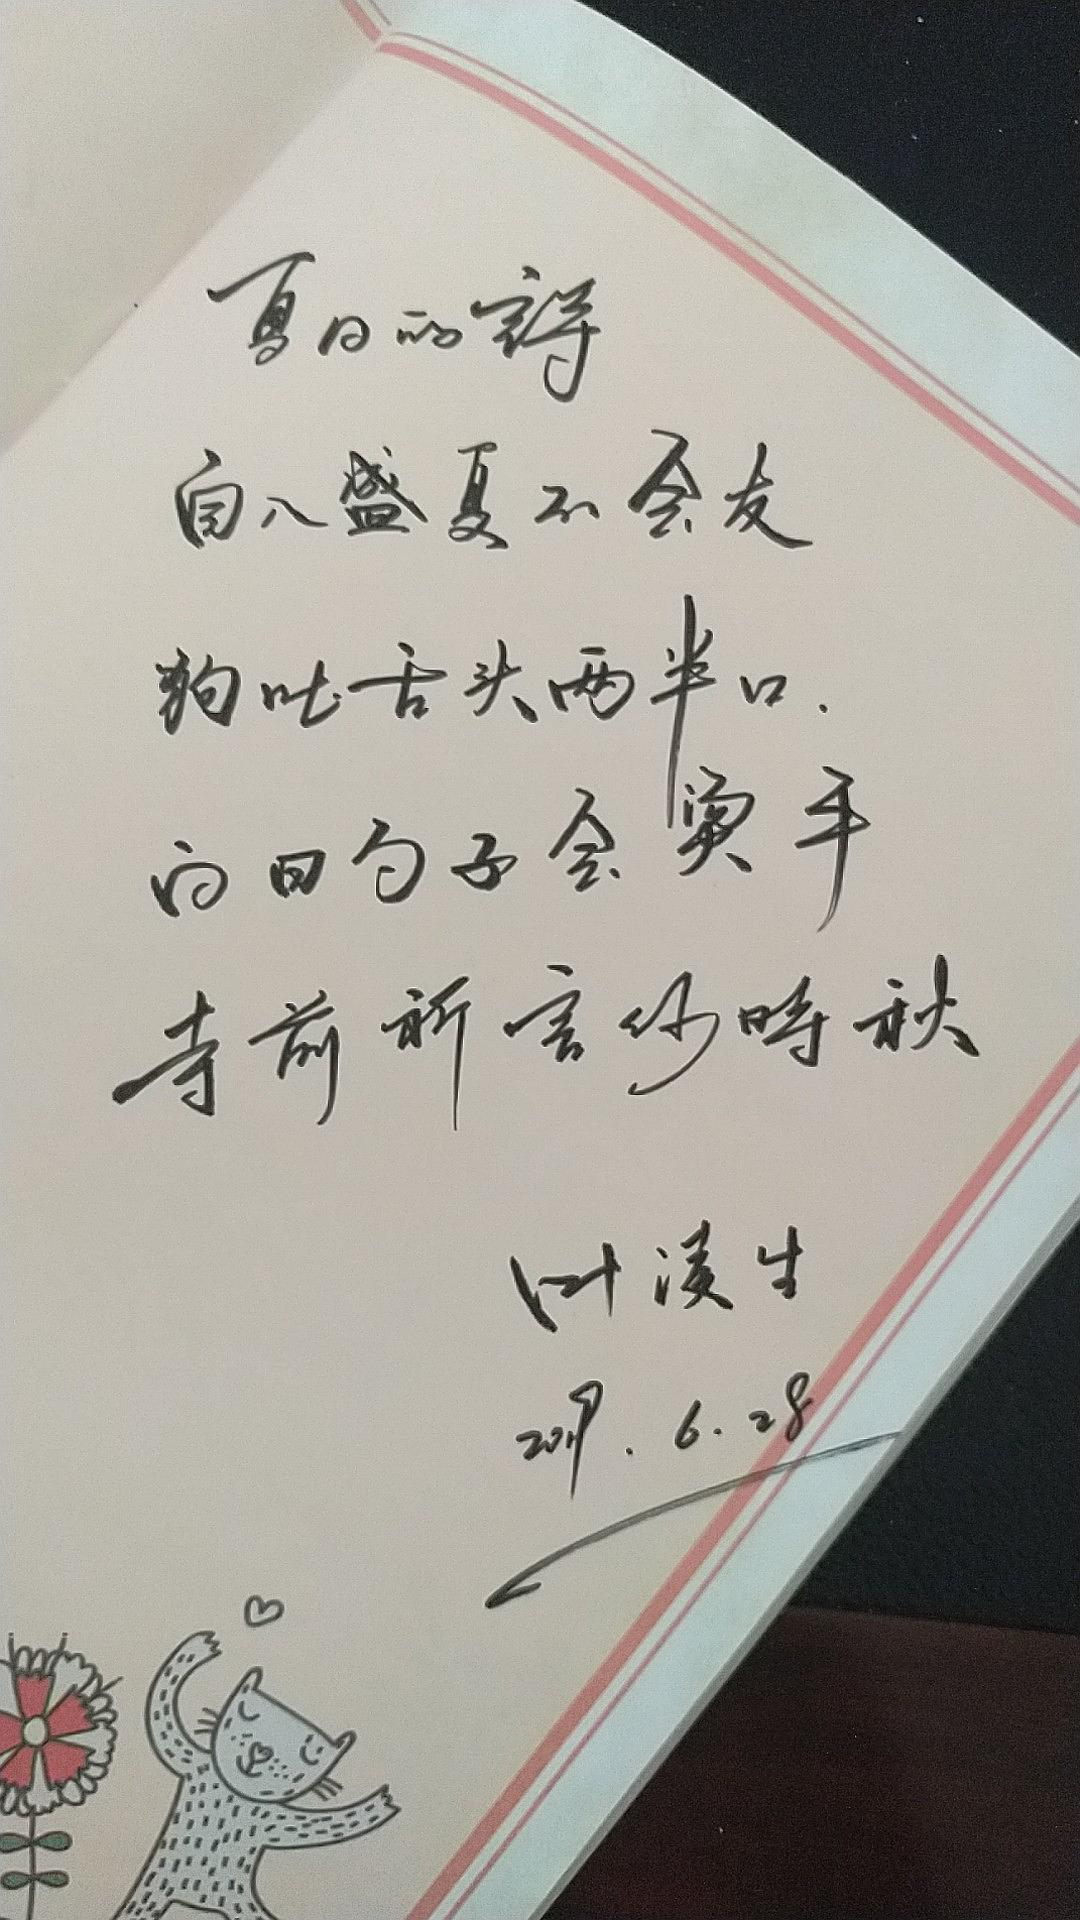 夏日的诗
自入盛夏不会友
狗吐舌头两半口.
向日勾子会烫手
寺前祈言妙時秋
叶淩生
2019.6.28